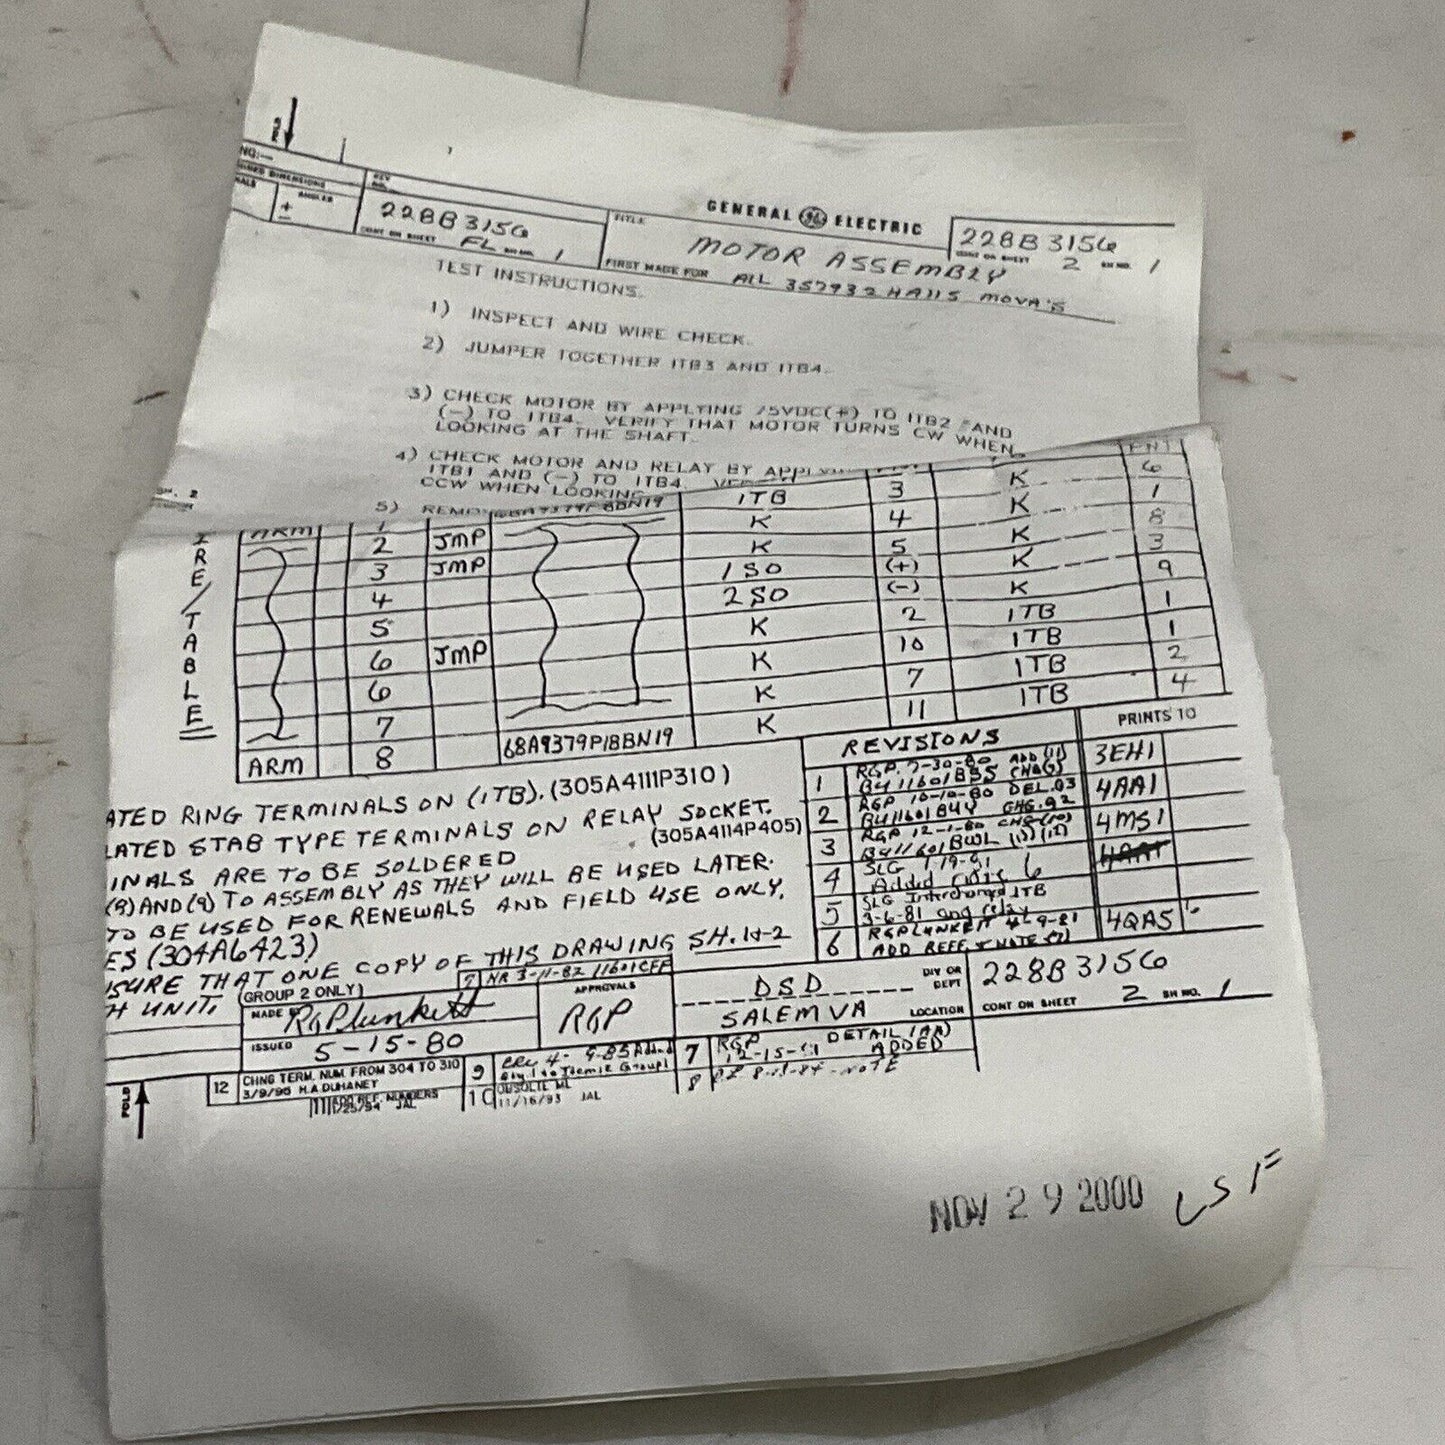 FOLD
NG:—
ANGULAR
+
REV
NO.
228B3156
CONT ON SHEET FL SH NO. 1
TITLE
GENERAL GE ELECTRIC
MOTOR ASSEMBLY
FIRST MADE FOR ALL 357932HA115 MOVA'S
228B3156
CONT ON SHEET 2 SH NO. 1
TEST INSTRUCTIONS.
1) INSPECT AND WIRE CHECK.
2) JUMPER TOGETHER 1TB3 AND 1TB4.
3) CHECK MOTOR BY APPLYING 75VDC(+) TO 1TB2 AND
(-) TO 1TB4. VERIFY THAT MOTOR TURNS CW WHEN
LOOKING AT THE SHAFT.
4) CHECK MOTOR AND RELAY BY
1TB1 AND (-) TO 1TB4.
CCW WHEN LOOKING
5)
SH. 2
WIRE/TABLE
ARM 1 68A9379P18BN19 1TB 3 K 6
2 JMP K 4 K 1
3 JMP K 5 K 8
4 1SO (+) K 3
5 2SO (-) K 9
6 JMP K 2 1TB 1
6 K 10 1TB 1
7 K 7 1TB 2
ARM 8 68A9379P18BN19 K 11 1TB 4
ATED RING TERMINALS ON (1TB). (305A4111P310)
LATED STAB TYPE TERMINALS ON RELAY SOCKET.
(305A4114P405)
INALS ARE TO BE SOLDERED
(8) AND (9) TO ASSEMBLY AS THEY WILL BE USED LATER.
TO BE USED FOR RENEWALS AND FIELD USE ONLY.
ES (304A6423)
SURE THAT ONE COPY OF THIS DRAWING SH. 1&2
H UNIT.
REVISIONS
PRINTS TO
1 RGP. 7-30-80 ADD (11)
BU11601BSS CHG(6)
3EH1
2 RGP 10-10-80 DEL.03
BU11601BUY CHG.02
4AA1
3 RGP 12-1-80 CHG(10)
BU11601BWL (11)(12)
4MS1
4 SLG 1-19-81
Added note 6
4AA1
5 SLG Interchanged 1TB
3-6-81 and relay
6 RGPLUNKETT 4-9-81
ADD REFE & NOTE (7)
4QA5
(GROUP 2 ONLY)
7 NR 3-11-82 11601CFF
MADE BY RGPlunkett
ISSUED 5-15-80
APPROVALS
RGP
DSD
SALEM VA
DIV OR
DEPT
LOCATION
228B3156
CONT ON SHEET 2 SH NO. 1
7 RGP DETAIL (AA)
ADDED
8
9
10 OBSOLTE ML
11/16/93 JAL
12 CHNG TERM. NUM. FROM 304 TO 310
3/9/98 H.A DUHANEY
11 ADD REF. NUMBERS
JAL
FOLD
NOV 29 2000